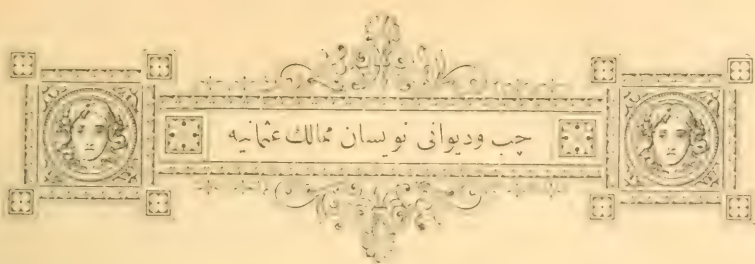 چب وديوانى نويسان ممالك عثمانيه